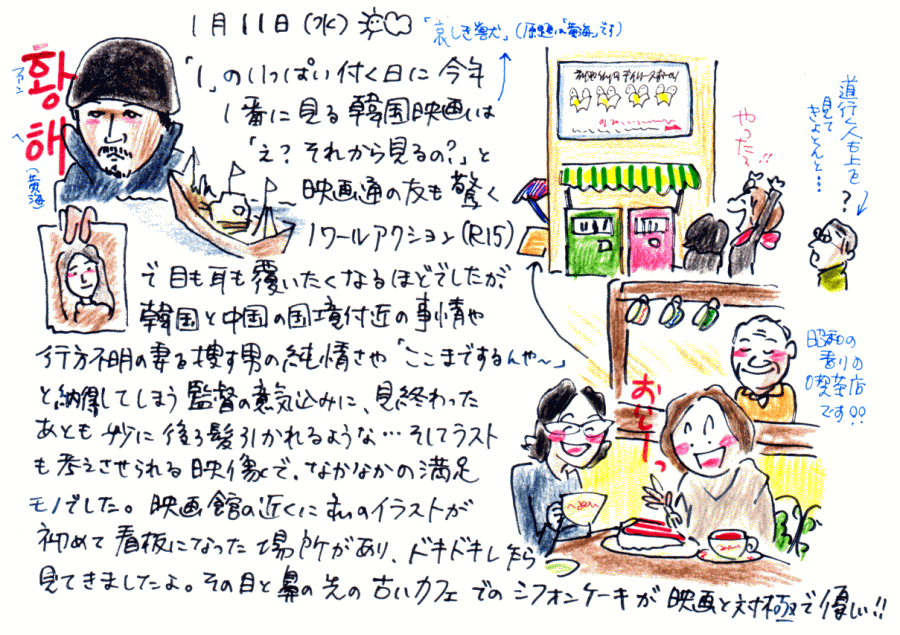 1月11日(水)
「哀しき獣」(原題は「黄海」です)
황해
ファン
ヘ
(黄海
「1」のいっぱい付く日に今年
1番に見る韓国映画は
「え?それから見るの?」と
映画通の友も驚く
ノワールアクション(R15)
で目も耳も覆いたくなるほどでしたが
韓国と中国の国境付近の事情や
行方不明の妻を捜す男の純情さや「ここまでするんや〜」
と納得してしまう監督の意気込みに、見終わった
あとも妙に後ろ髪引かれるような…そしてラスト
も考えさせられる映像で、なかなかの満足
モノでした。映画館の近くに私のイラストが
初めて看板になった場所があり、ドキドキしたら
見てきましたよ。その目と鼻の先の古いカフェでのシフォンケーキが映画と対極で優しい!!
やったろ!!
道行く人も上を
見て
きょとんと…
?
昭和の
香りの
喫茶店
です!!
おいしーっ